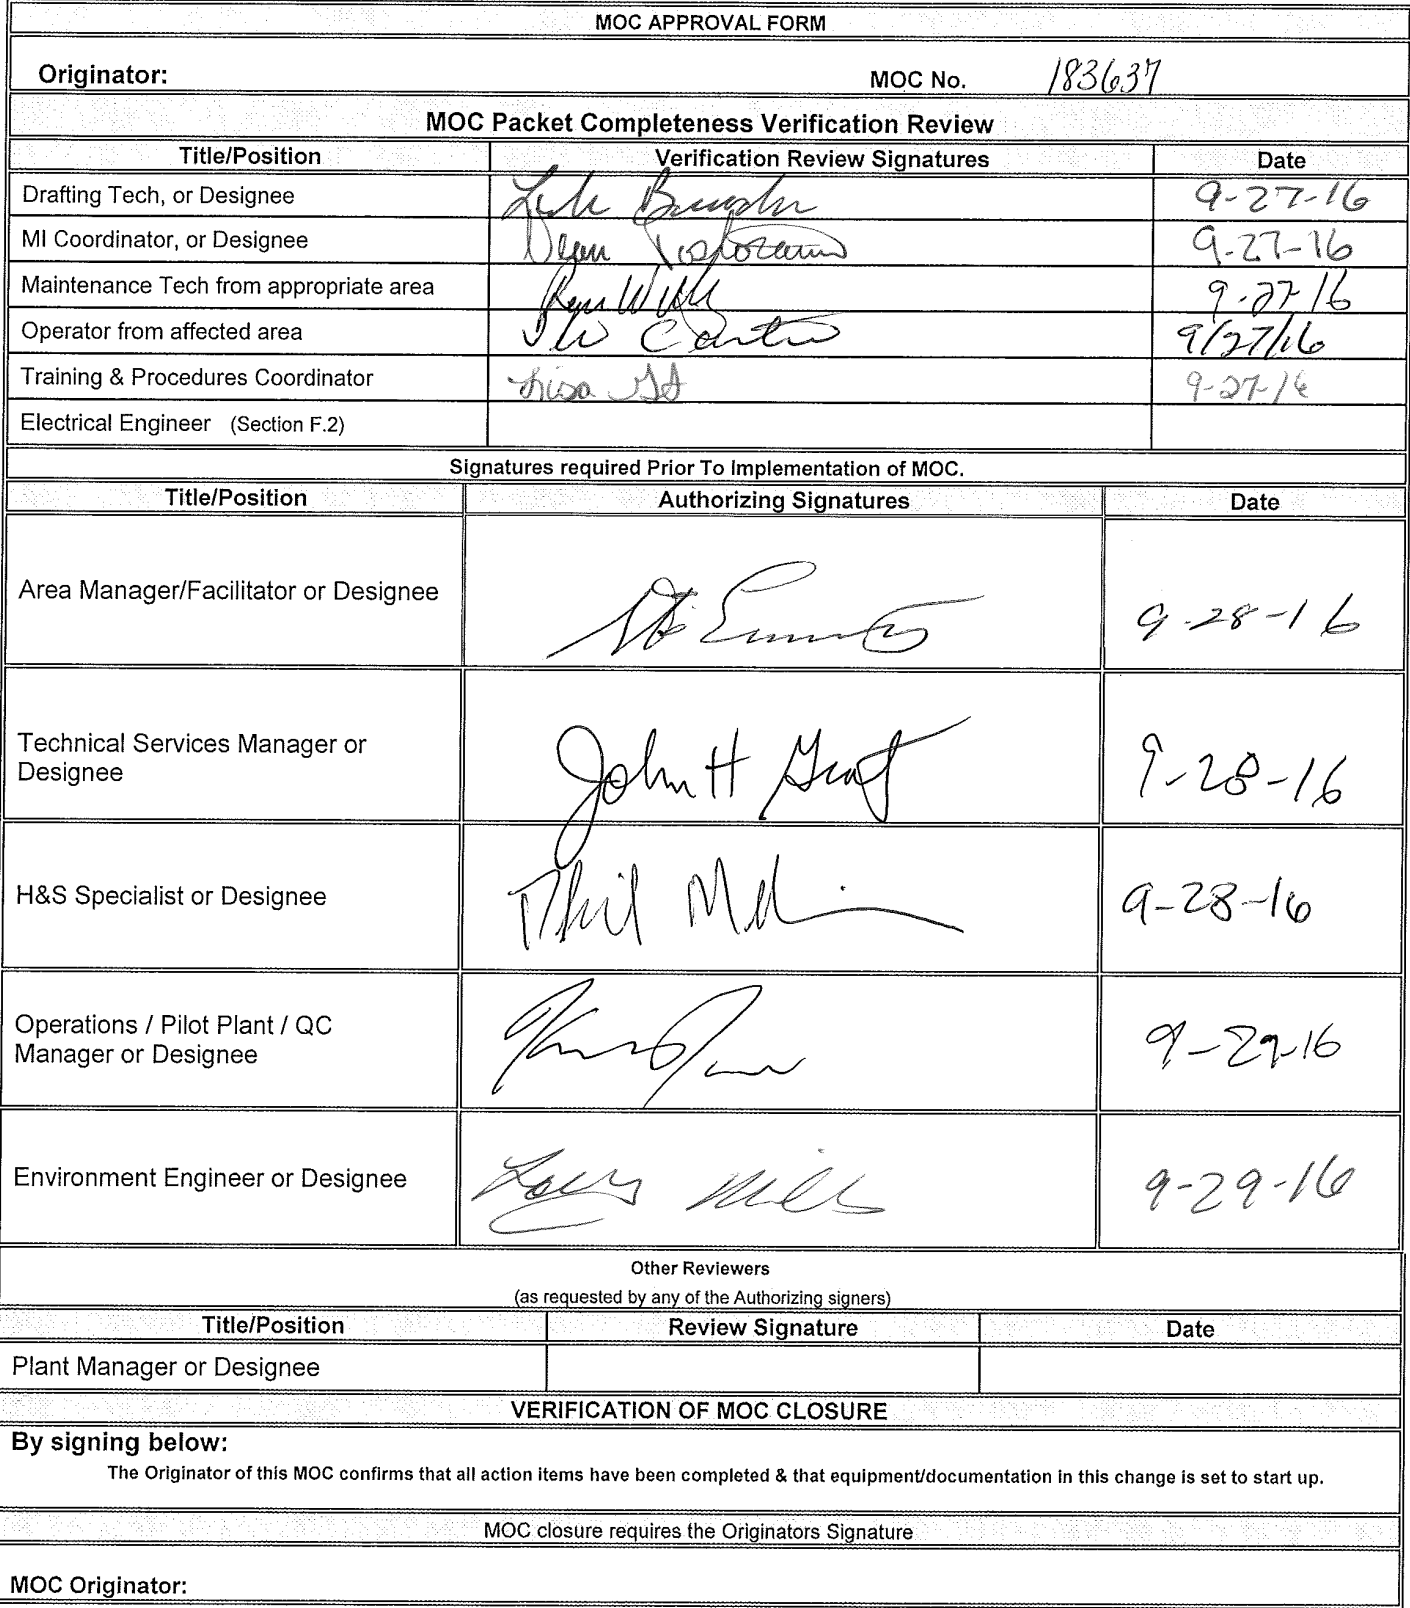 MOC APPROVAL FORM
Originator: MOC No. 183637
MOC Packet Completeness Verification Review
Title/Position Verification Review Signatures Date
Drafting Tech, or Designee 9-27-16
MI Coordinator, or Designee Dean 9-27-16
Maintenance Tech from appropriate area 9-27-16
Operator from affected area 9/27/16
Training & Procedures Coordinator Lisa 9-27-16
Electrical Engineer (Section F.2)
Signatures required Prior To Implementation of MOC.
Title/Position Authorizing Signatures Date
Area Manager/Facilitator or Designee 9-28-16
Technical Services Manager or
Designee John H 9-28-16
H&S Specialist or Designee Phil 9-28-16
Operations / Pilot Plant / QC
Manager or Designee 9-29-16
Environment Engineer or Designee 9-29-16
Other Reviewers
(as requested by any of the Authorizing signers)
Title/Position Review Signature Date
Plant Manager or Designee
VERIFICATION OF MOC CLOSURE
By signing below:
The Originator of this MOC confirms that all action items have been completed & that equipment/documentation in this change is set to start up.
MOC closure requires the Originators Signature
MOC Originator: